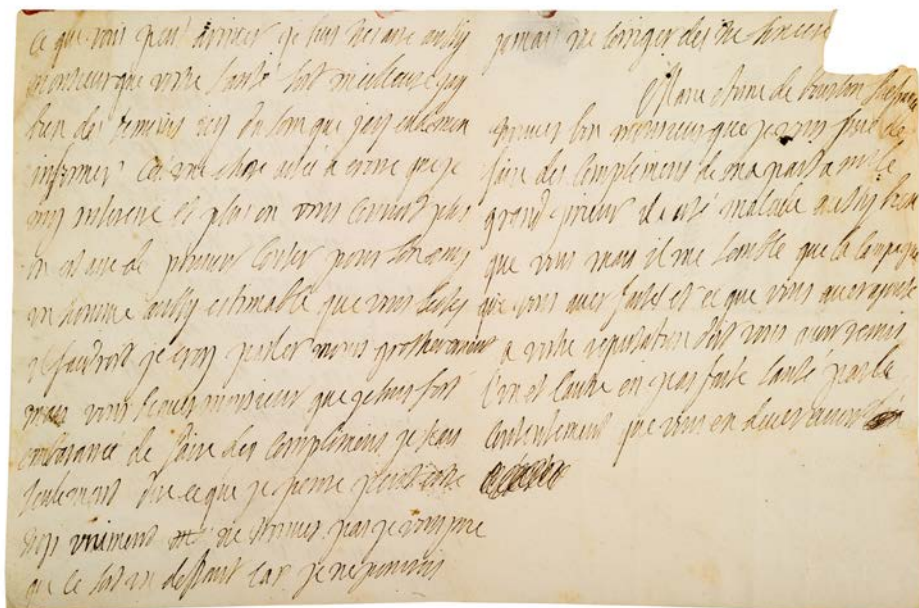 ce que vous peut arriver je suis bien aise aussy
monsieur que votre santé soit meilleure jay
bien des temoins icy du soin que jay eu de men
informer cet une chose aisée a croire que je
my interesse et plus on vous connoit plus
on est aise de pouvoir conter pour son amy
un homme aussy estimable que vous lestes
il faudroit je croy parler moins grossierement
mais vous scaves monsieur que je suis fort
embarassée de faire des complimens je scay
seulement dire ce que je pense peut estre
trop vraiment ne trouves pas je vous prie
que ce soit un deffaut car je ne pourrois
jamais me corriger destre sincere
Marie Anne de bourbon
trouves bon monsieur que je vous prie de
faire des complimens de ma part a mr le
grand prieur il a esté malade aussy bien
que vous mais il me semble que la campagne
que vous aves faite et ce que vous aves ajouté
a votre reputation doit vous avoir remis
l'un et l'autre en parfaite santé par le
contentement que vous en deves avoir